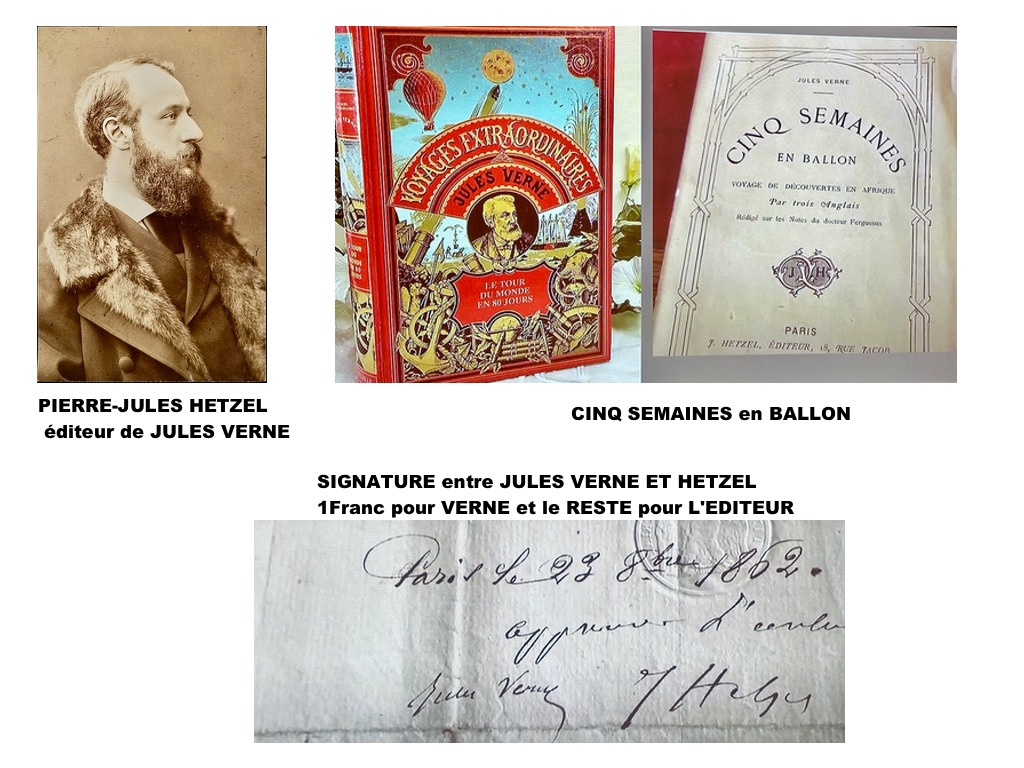 VOYAGES EXTRAORDINAIRES
JULES VERNE
LE TOUR
DU MONDE
EN 80 JOURS
JULES VERNE
CINQ SEMAINES
EN BALLON
VOYAGE DE DÉCOUVERTES EN AFRIQUE
Par trois Anglais
Rédigé sur les Notes du docteur Fergusson
J H
PARIS
J. HETZEL, ÉDITEUR, 18, RUE JACOB
PIERRE-JULES HETZEL
éditeur de JULES VERNE
CINQ SEMAINES en BALLON
SIGNATURE entre JULES VERNE ET HETZEL
1Franc pour VERNE et le RESTE pour L'EDITEUR
Paris le 23 8bre 1862.
Jules Verne J Hetzel